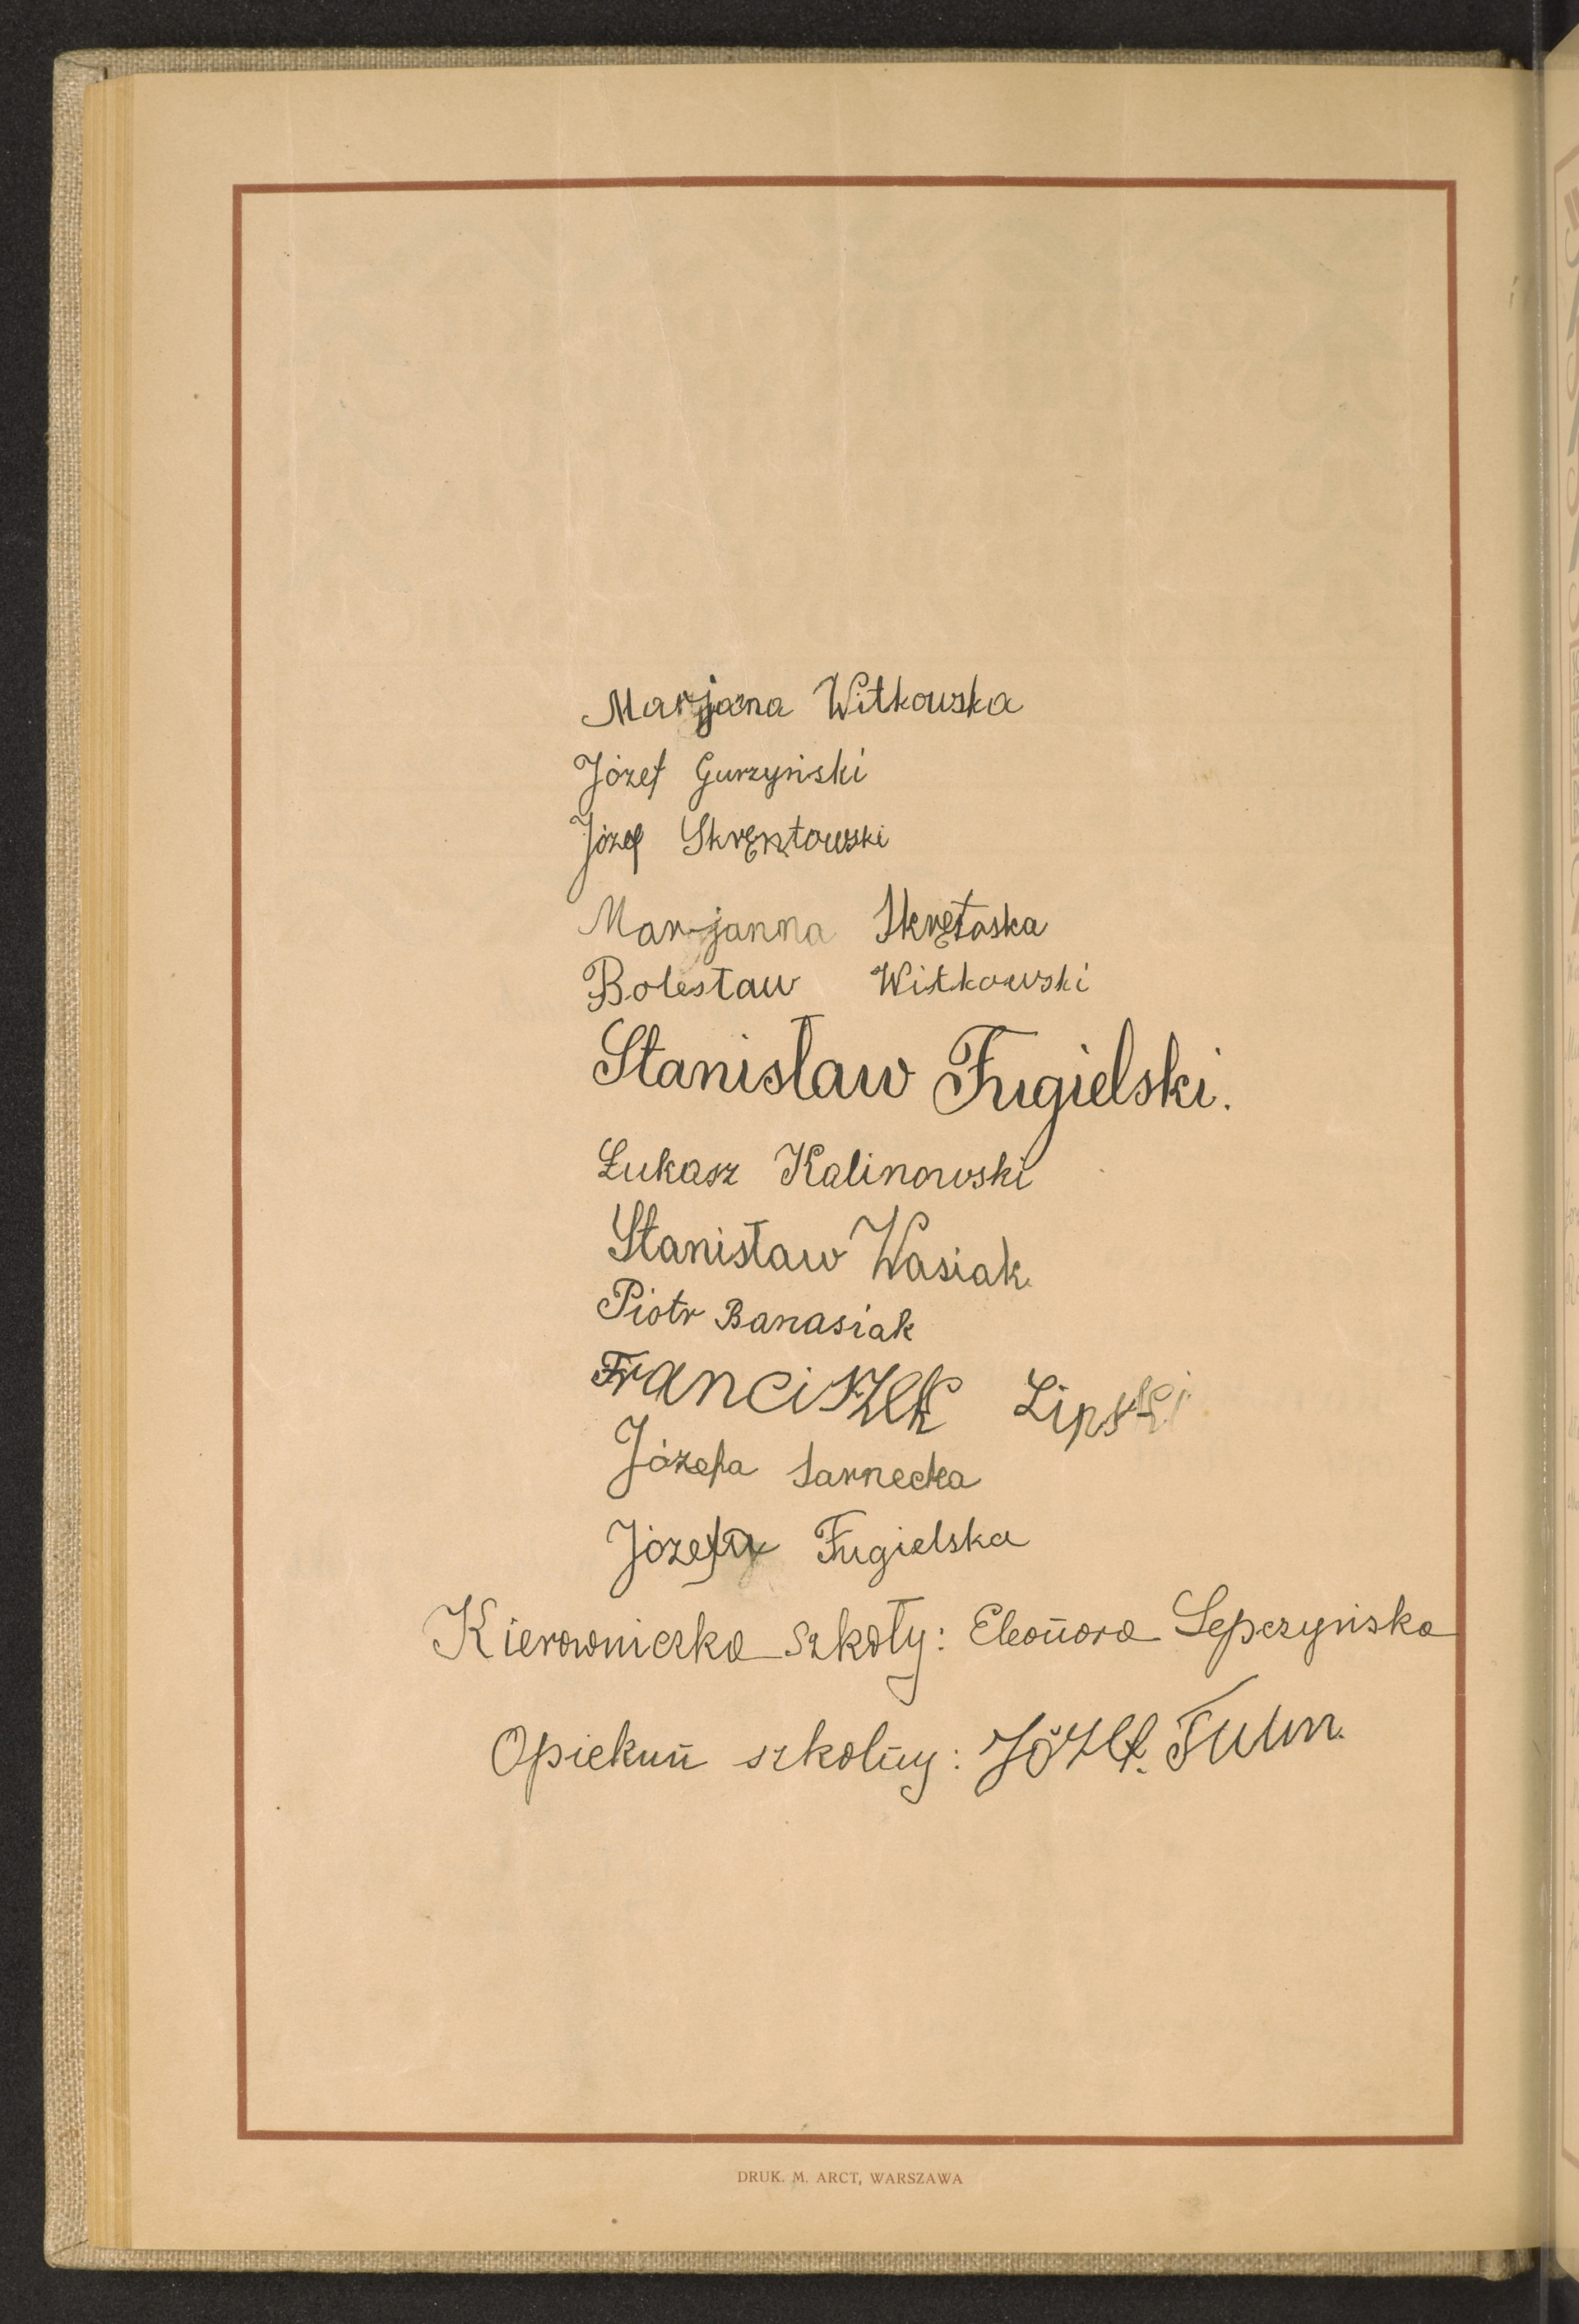 Marjana Witkowska
Józef Gurzyński
Józef Skrentowski
Marjanna Skrętoska
Bolesław Witkowski
Stanisław Fugielski.
Łukasz Kalinowski
Stanisław Wasiak
Piotr Banasiak
Franciszek Lipski
Józefa Sarnecka
Józefa Fugielska
Kierowniczka szkoły: Eleonora Lepczyńska
Opiekun szkolny: Józef
DRUK. M. ARCT, WARSZAWA